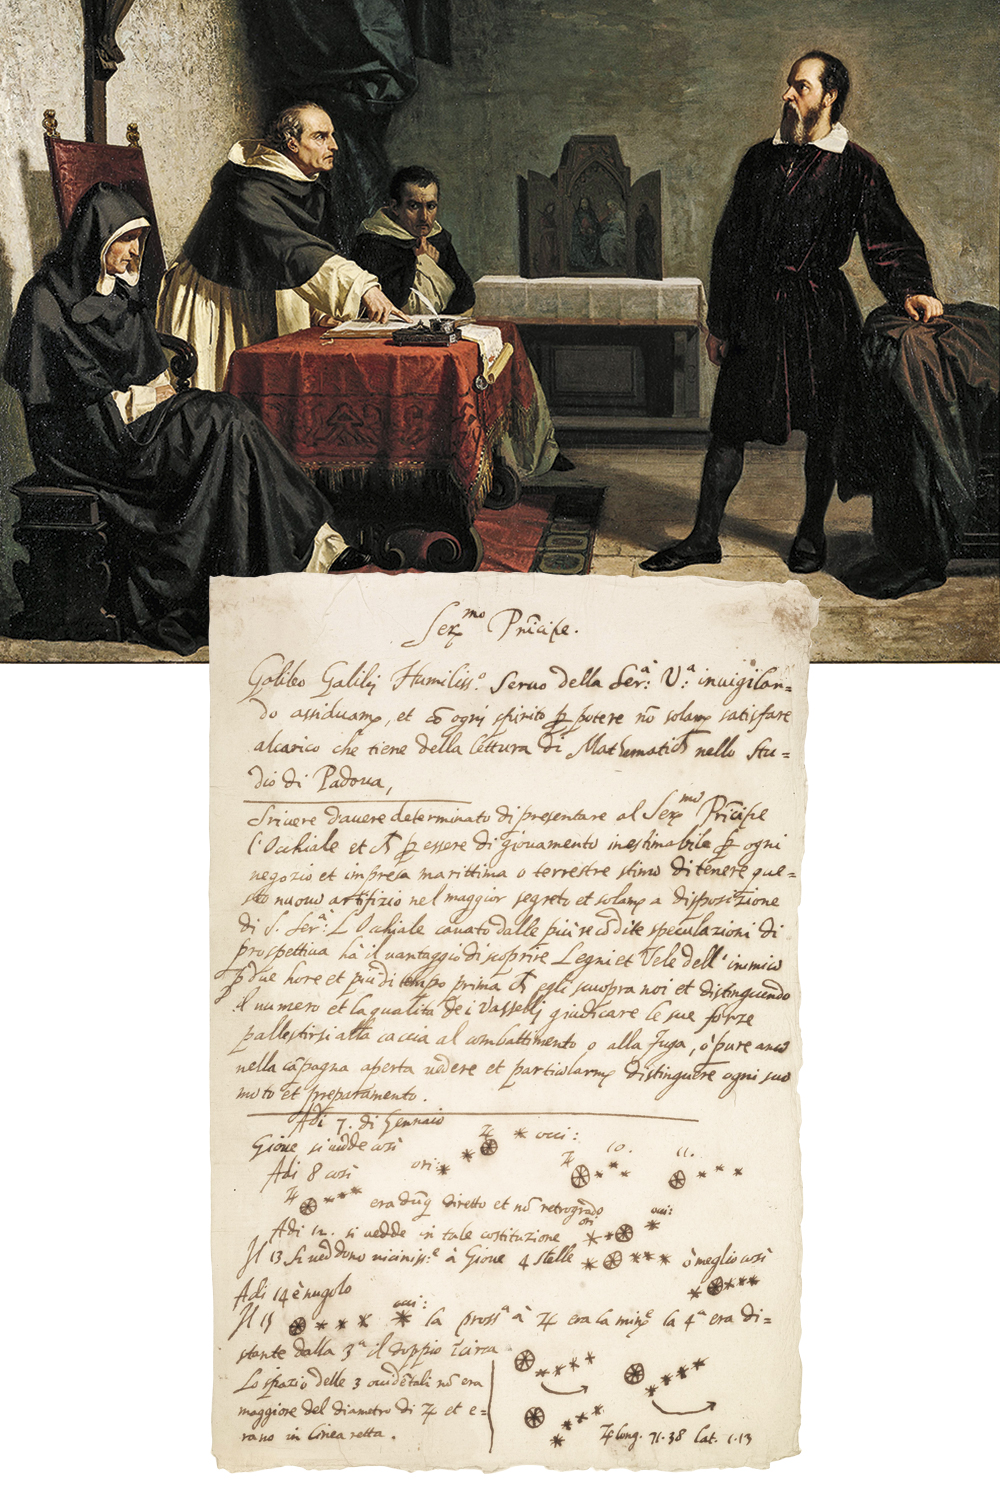 Ser.mo Prīcipe.
Galileo Galilei Humiliss.o Seruo della Ser:a V:a inuigilan=
do assiduam.e, et cō ogni spirito p potere nō solam.e satisfare
al carico che tiene della lettura di Mathematica nello Stu=
dio di Padoua,
Scriuere dauere determinato di presentare al Ser.mo Prīcipe
l'Occhiale et p essere di giouamento inestimabile p ogni
negozio et impresa marittima o terrestre stimo di tenere que=
sto nuouo artifizio nel maggior segreto et solam.e a disposizione
di S. Ser:a L'Occhiale cauato dalle più recōdite speculazioni di
prospettiua hà il uantaggio di scoprire Legni et Vele dell'inimico
p due hore et più di tempo prima egli scuopra noi et distinguendo
il numero et la qualità de i Vasselli giudicare le sue forze
pallestirsi alla caccia al combattimento o alla fuga, ò pure anco
nella cāpagna aperta uedere et particularm.e distinguere ogni suo
moto et preparamento.
Adi 7. di Gennaio
Gioue si uedde così ♃ occi:
Adi 8 così ori: ♃ 10. 11.
♃ era dūq diretto et nō retrogrado
Adi 12. si uedde in tale costituzione ori occi:
Il 13 si ueddono uiciniss.e à Gioue 4 stelle ò meglio così
Adi 14 è nugolo
Il 15 occi: la pross.a à ♃ era la min.e la 4.a era di=
stante dalla 3.a il doppio īcirca
Lo spazio delle 3 occidētali nō era
maggiore del diametro di ♃ et e=
rano in linea retta.
♃ long. 71.38 Lat. 1.13